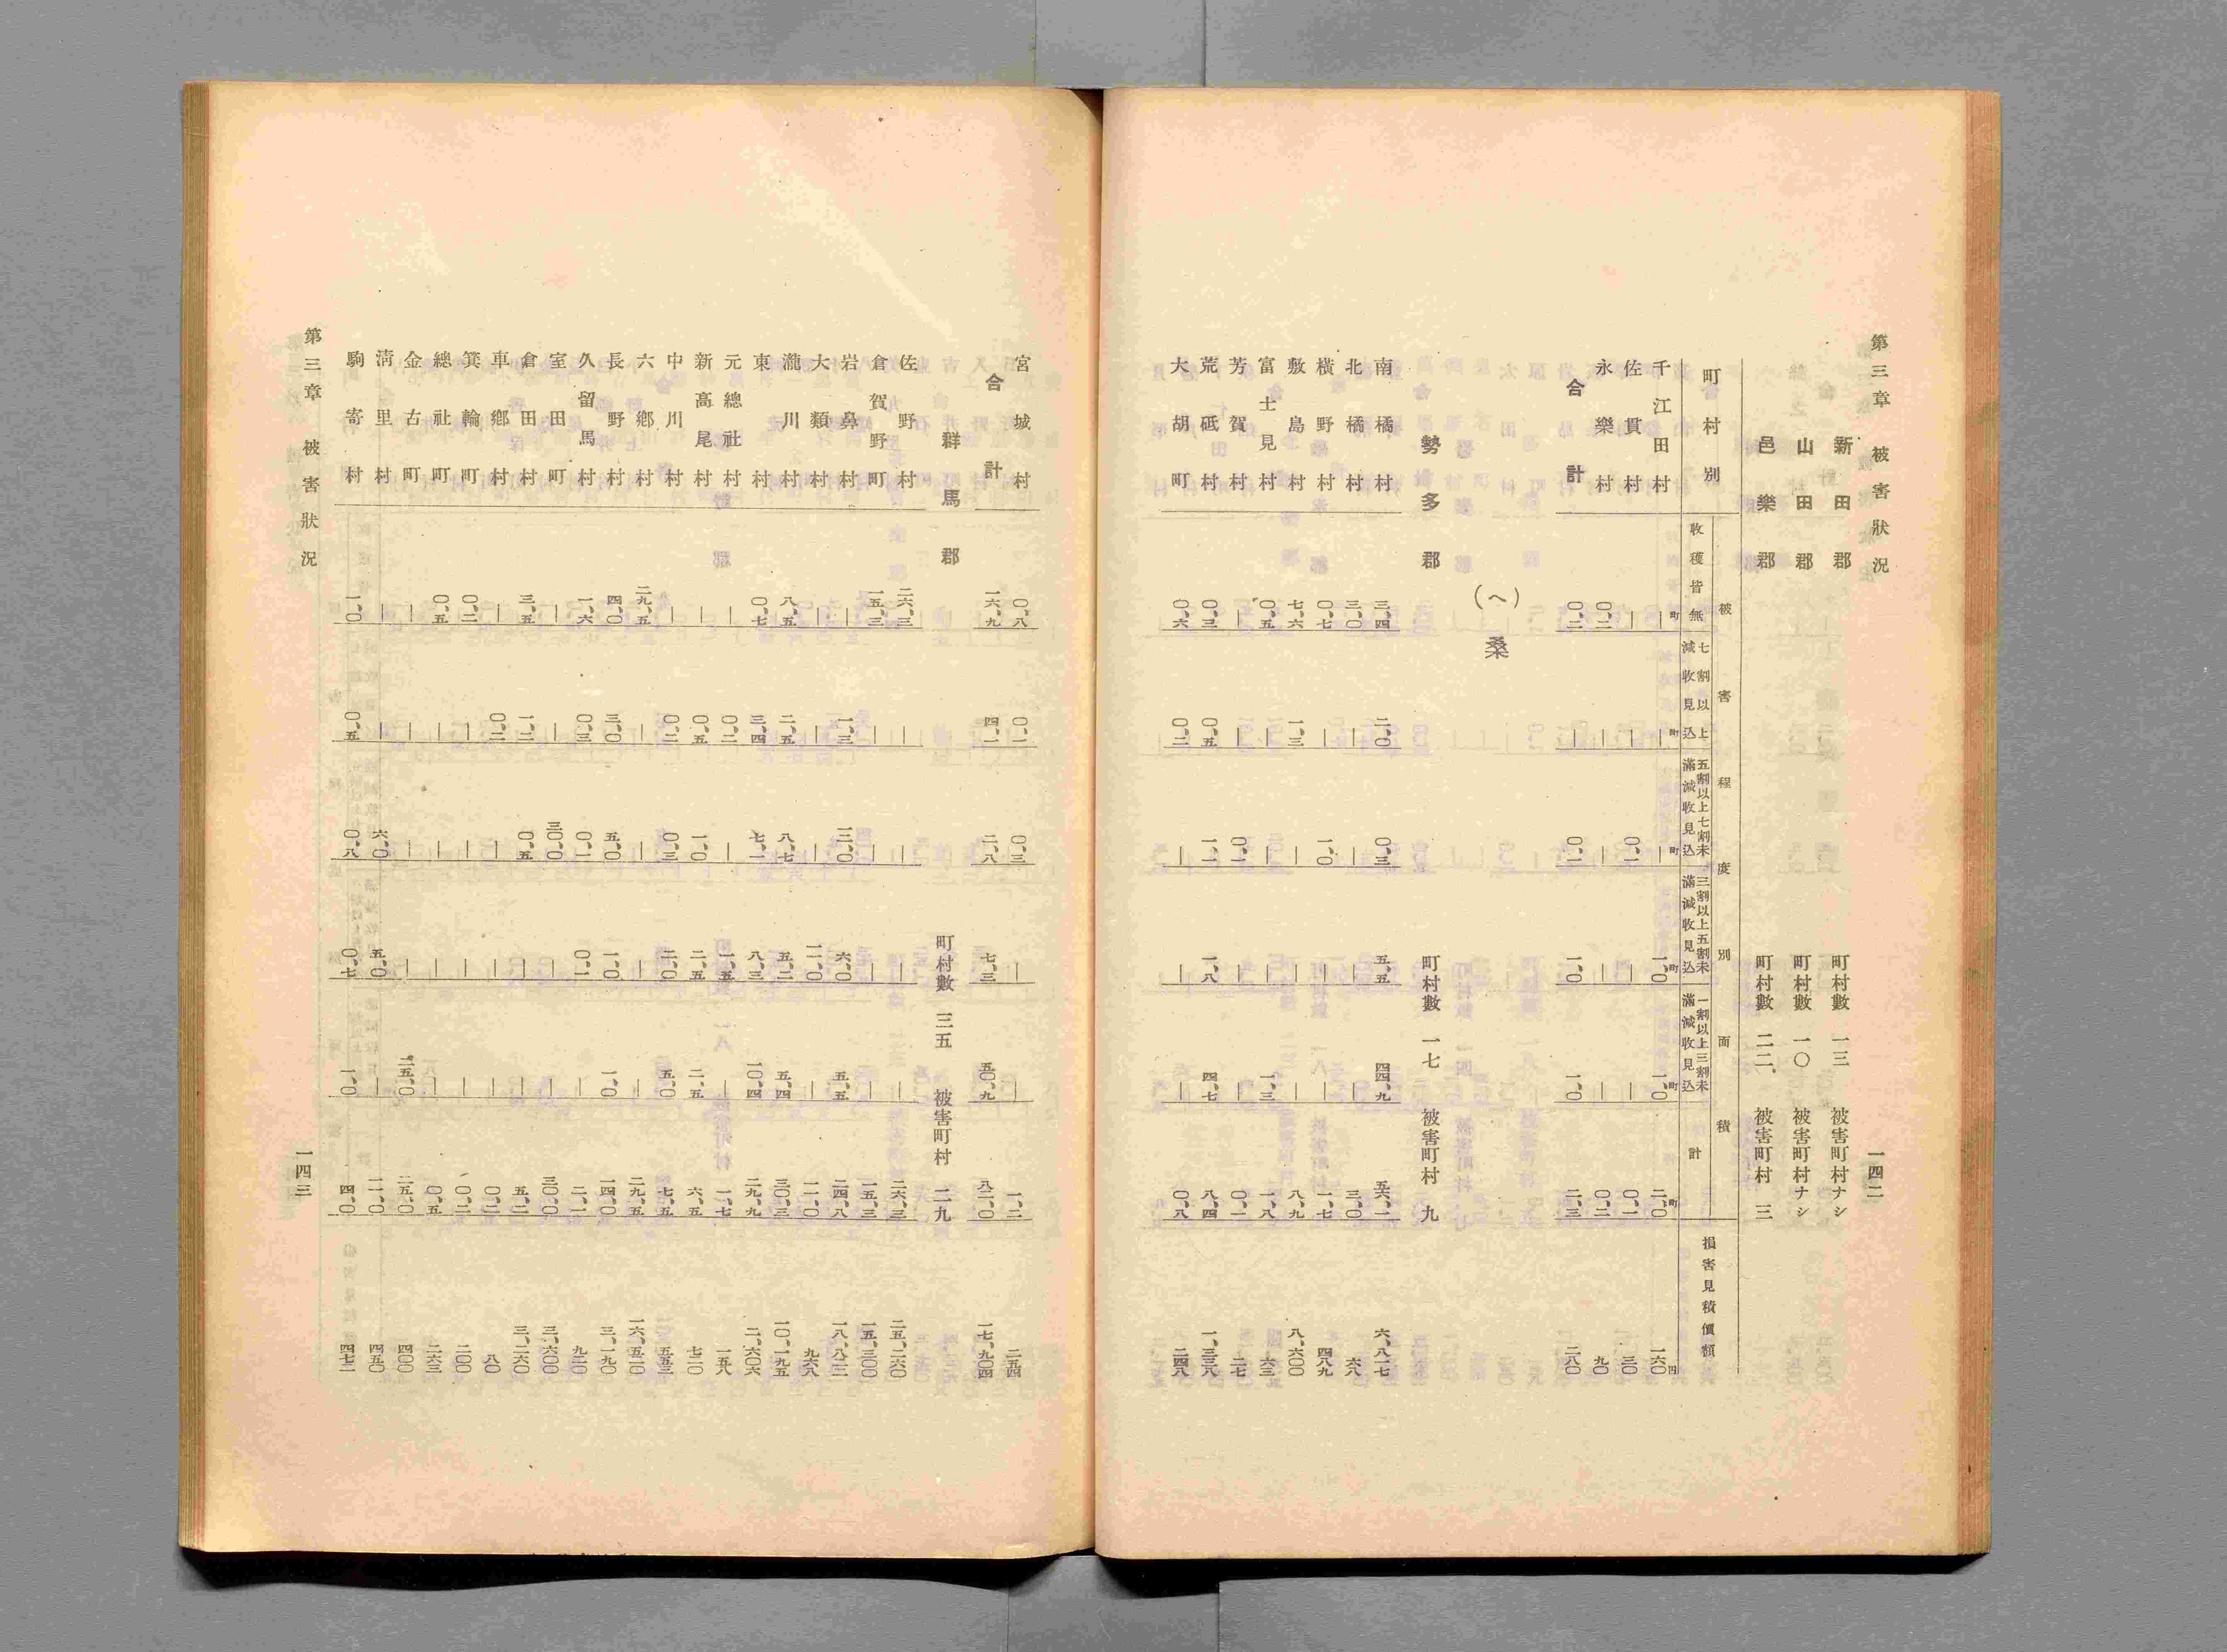 第三章 被害狀況 一四二
新田郡 町村數 一三 被害町村ナシ
山田郡 町村數 一〇 被害町村ナシ
邑樂郡 町村數 二二 被害町村 三
町村別 被害程度別面積 損害見積價額
收穫皆無 七割以上減收見込 五割以上七割未滿減收見込 三割以上五割未滿減收見込 一割以上三割未滿減收見込 計
町 町 町 町 町 町 円
千江田村 — — — 一、〇 一、〇 二、〇 一六〇
佐貫村 — — 〇、一 — — 〇、一 三〇
永樂村 〇、二 — — — — 〇、二 九〇
合計 〇、二 — 〇、一 一、〇 一、〇 二、三 二八〇
(ヘ) 桑
勢多郡 町村數 一七 被害町村 九
南橘村 三、四 二、〇 〇、三 五、五 四四、九 五六、一 六、八一七
北橘村 三、〇 — — — — 三、〇 六八
横野村 〇、七 — 一、〇 — — 一、七 四八九
敷島村 七、六 一、三 — — — 八、九 八、六〇〇
富士見村 〇、五 — — — 一、三 一、八 六三
芳賀村 — — 〇、一 — — 〇、一 二七
荒砥村 〇、三 〇、五 一、一 一、八 四、七 八、四 一、三三八
大胡町 〇、六 〇、二 — — — 〇、八 二四八
宮城村 〇、八 〇、一 〇、三 — — 一、二 二五四
合計 一六、九 四、一 二、八 七、三 五〇、九 八二、〇 一七、九〇四
群馬郡 町村數 三五 被害町村 二九
佐野村 二六、三 — — — — 二六、三 二五、二六〇
倉賀野町 一五、三 — — — — 一五、三 一五、三〇〇
岩鼻村 — 一、三 一二、〇 六、〇 五、五 二四、八 一八、八二二
大類村 — — — 一一、〇 — 一一、〇 九六八
瀧川村 八、五 二、五 八、七 五、二 五、四 三〇、三 一〇、一九五
東村 〇、七 三、四 七、一 八、三 一〇、四 二九、九 二、六〇六
元總社村 — 〇、二 — 一、五 — 一、七 一五八
新高尾村 — 〇、五 一、〇 二、五 二、五 六、五 七二〇
中川村 — 〇、二 〇、三 二、〇 五、〇 七、五 五五三
六鄕村 二九、五 — — — — 二九、五 一六、五二〇
長野村 四、〇 三、〇 五、〇 一、〇 一、〇 一四、〇 三、一九〇
久留馬村 一、六 〇、三 〇、一 〇、一 — 二、一 九二〇
室田町 — — 三〇、〇 — — 三〇、〇 三、六〇〇
倉田村 三、五 一、二 〇、五 — — 五、二 三、二六〇
車鄕村 — 〇、二 — — — 〇、二 八〇
箕輪町 〇、二 — — — — 〇、二 二〇〇
總社町 〇、五 — — — — 〇、五 二六三
金古町 — — — — 二五、〇 二五、〇 四〇〇
淸里村 — — 六、〇 五、〇 — 一一、〇 四五〇
駒寄村 一、〇 〇、五 〇、八 〇、七 一、〇 四、〇 四七二
第三章 被害狀況 一四三